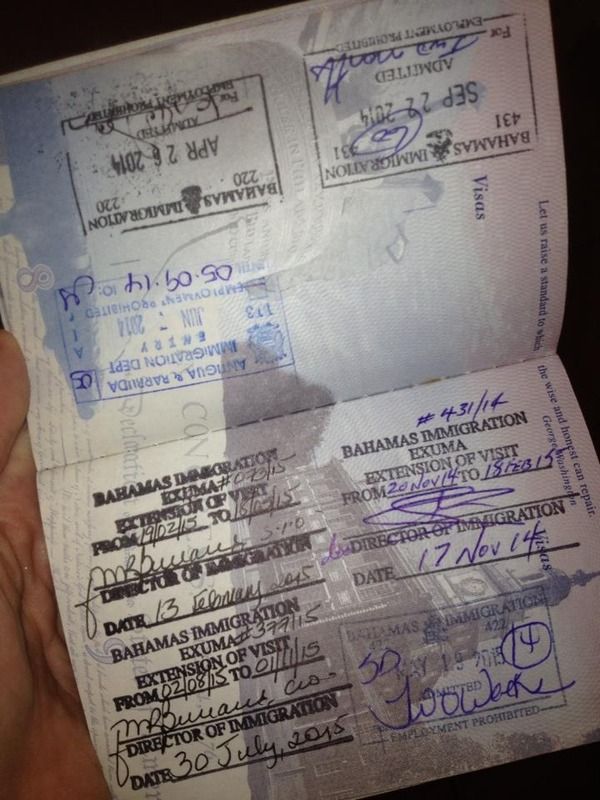 BAHAMAS IMMIGRATION
220 220
APR 26 2014
ADMITTED
For
EMPLOYMENT PROHIBITED
BAHAMAS IMMIGRATION
431 431
SEP 22 2014
ADMITTED
For Two month
EMPLOYMENT PROHIBITED
Visas
Let us raise a standard to which
the wise and honest can repair.
George Washington
8
ANTIGUA & BARBUDA
IMMIGRATION DEPT
ENTRY
113
JUN 2014
EMPLOYMENT PROHIBITED
UNTIL 05.09.14
# 431/14
BAHAMAS IMMIGRATION
EXUMA
EXTENSION OF VISIT
FROM 20 NOV 14 TO 18 FEB 15
DIRECTOR OF IMMIGRATION
DATE 17 Nov 14
BAHAMAS IMMIGRATION
EXUMA
EXTENSION OF VISIT
FROM 19/02/15 TO
DIRECTOR OF IMMIGRATION
DATE 13 February 2015
BAHAMAS IMMIGRATION
EXUMA #377/15
EXTENSION OF VISIT
FROM 02/08/15 TO 01/11/15
DIRECTOR OF IMMIGRATION
DATE 30 July, 2015
Visas
BAHAMAS IMMIGRATION
MAY 19 2015
14
ADMITTED
Two Weeks
EMPLOYMENT PROHIBITED